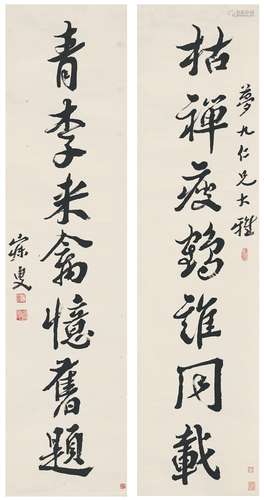 夢九仁兄大雅
枯禪瘦鶴誰同載
青李来禽憶舊題
寐叟